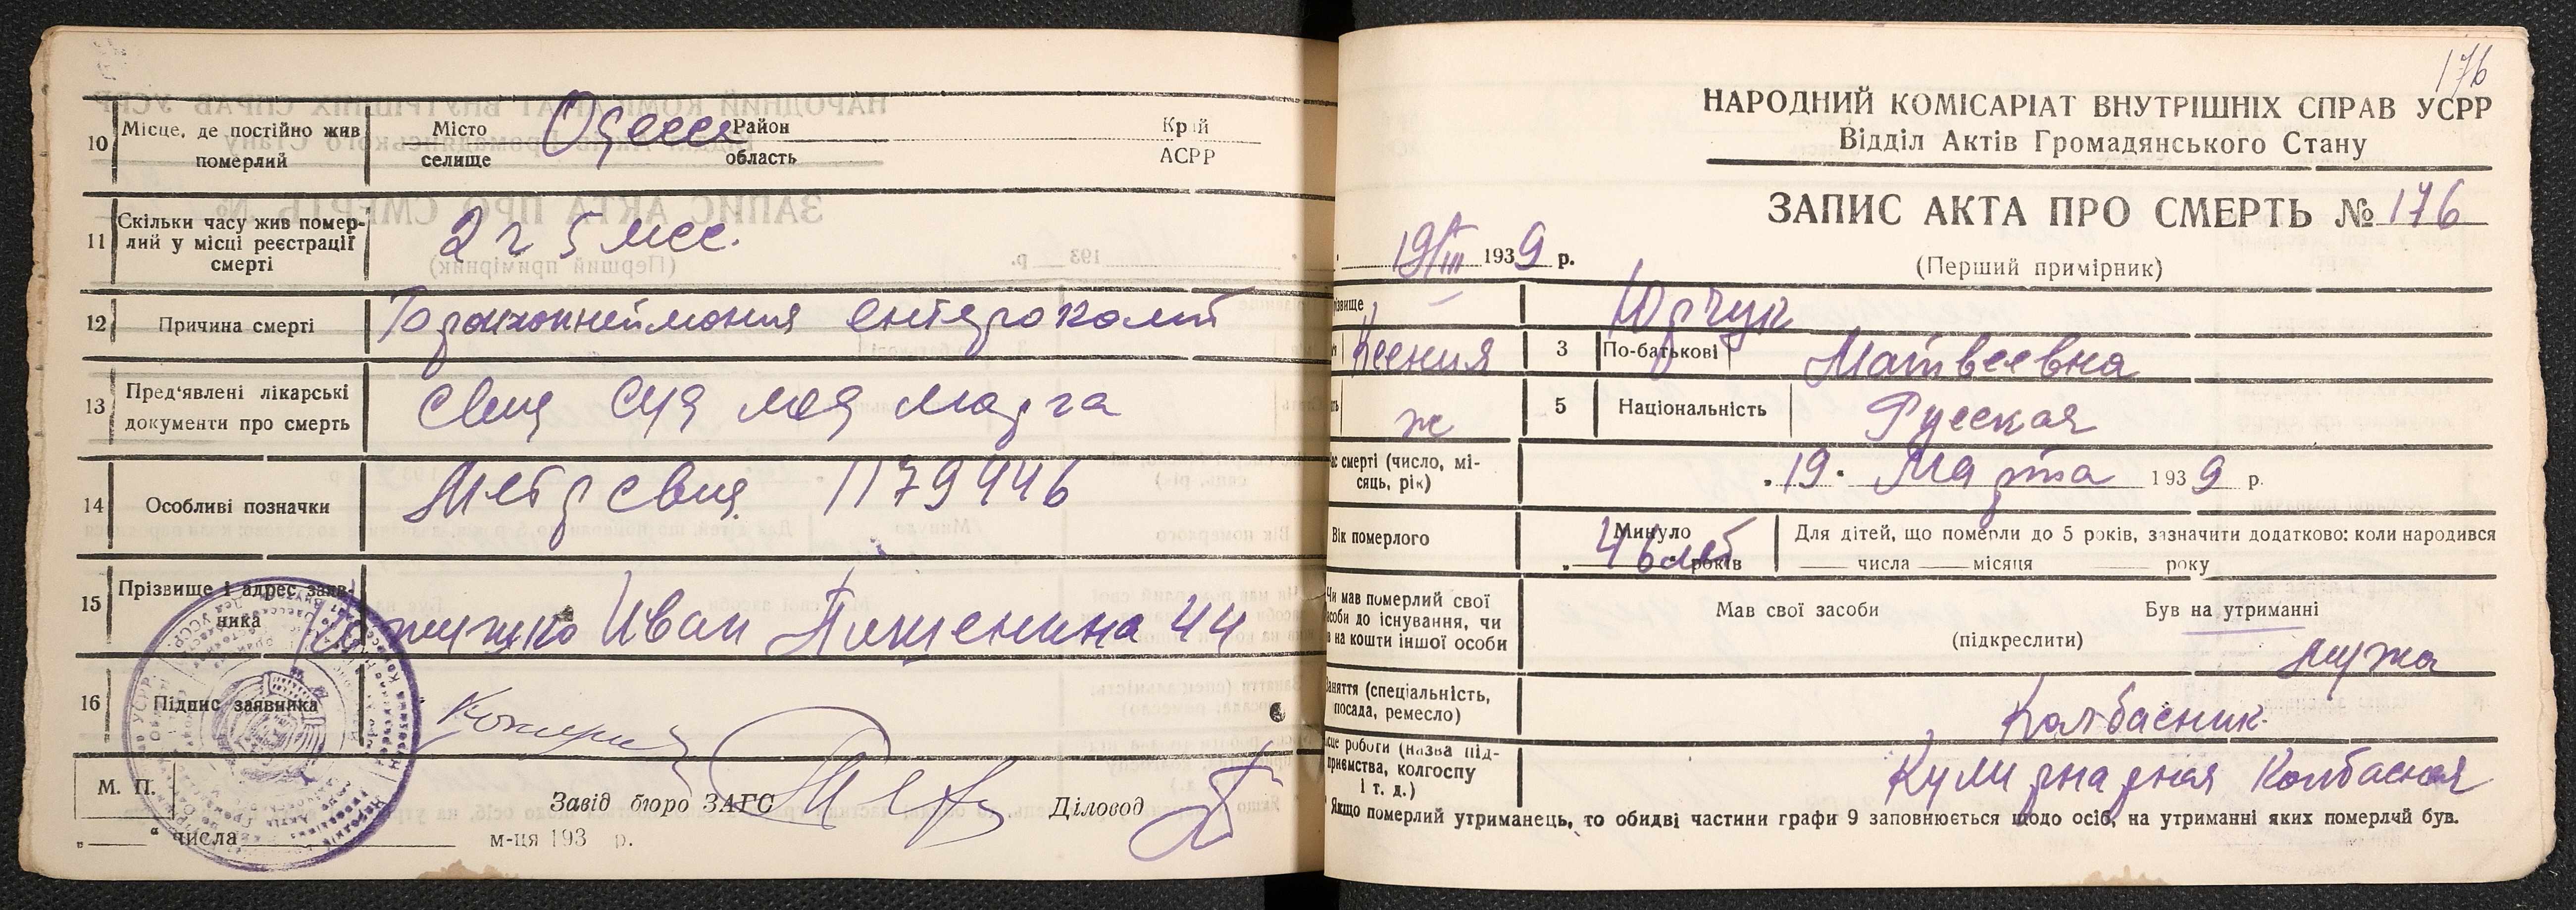 10 Місце, де постійно жив померлий
Місто селище Одесса Район область Край АСРР
11 Скільки часу жив помер-
лий у місці реєстрації
смерті
2 г 5 мес.
12 Причина смерті
Бронхопнеймония ентероколит
13 Пред'явлені лікарські
документи про смерть
14 Особливі позначки
П79446
15 Прізвище і адрес заяв-
ника
Иван 44
16 Підпис заявника
М. П.
Завід бюро ЗАГС Діловод
„ “ числа м-ця 193 р.
176
НАРОДНИЙ КОМІСАРІАТ ВНУТРІШНІХ СПРАВ УСРР
Відділ Актів Громадянського Стану
ЗАПИС АКТА ПРО СМЕРТЬ № 176
19/III 1939 р.
(Перший примірник)
звище Юрчук
Ксения 3 По-батькові Матвеевна
ж 5 Національність Русская
ас смерті (число, мі-
сяць, рік)
„19“ Марта 1939 р.
Вік померлого
Минуло
46 лет років
Для дітей, що померли до 5 років, зазначити додатково: коли народився
числа місяця року
Чи мав померлий свої
засоби до існування, чи
в на кошти іншої особи
Мав свої засоби Був на утриманні
(підкреслити)
мужа
Заняття (спеціальність,
посада, ремесло)
Колбасник
сце роботи (назва під-
приємства, колгоспу
і т. д.)
Кулинарная Колбасная
Якщо померлий утриманець, то обидві частини графи 9 заповнюється щодо осіб, на утриманні яких померлий був.